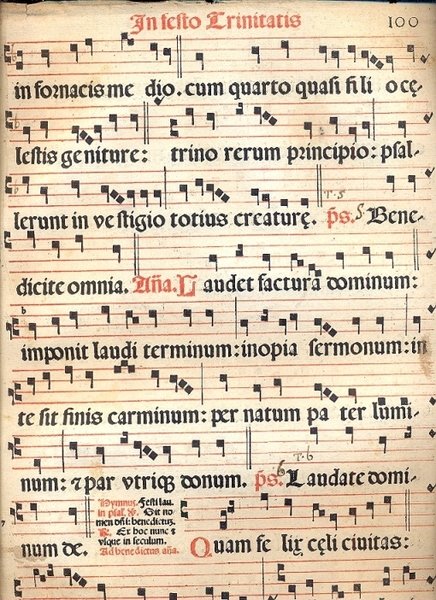 In festo Trinitatis 100
in fornacis me dio. cum quarto quasi fi li o cę-
lestis ge niture: trino rerum principio: psal-
lerunt in ve stigio totius creaturę. T. 5 p̄s. 5 Bene-
dicite omnia. Añа. L audet factura dominum:
imponit laudi terminum: inopia sermonum: in
te sit finis carminum: per natum pa ter lumi-
num: ⁊ par vtriqꝫ donum. T. 6 p̄s. 6 Laudate domi-
num de.
Hymnus. Festi lau.
in psal. ℣. Sit no
men dñi: benedictus.
℟. Ex hoc nunc ⁊
vsque in seculum.
Ad benedictus aña.
Quam fe lix cęli ciuitas: